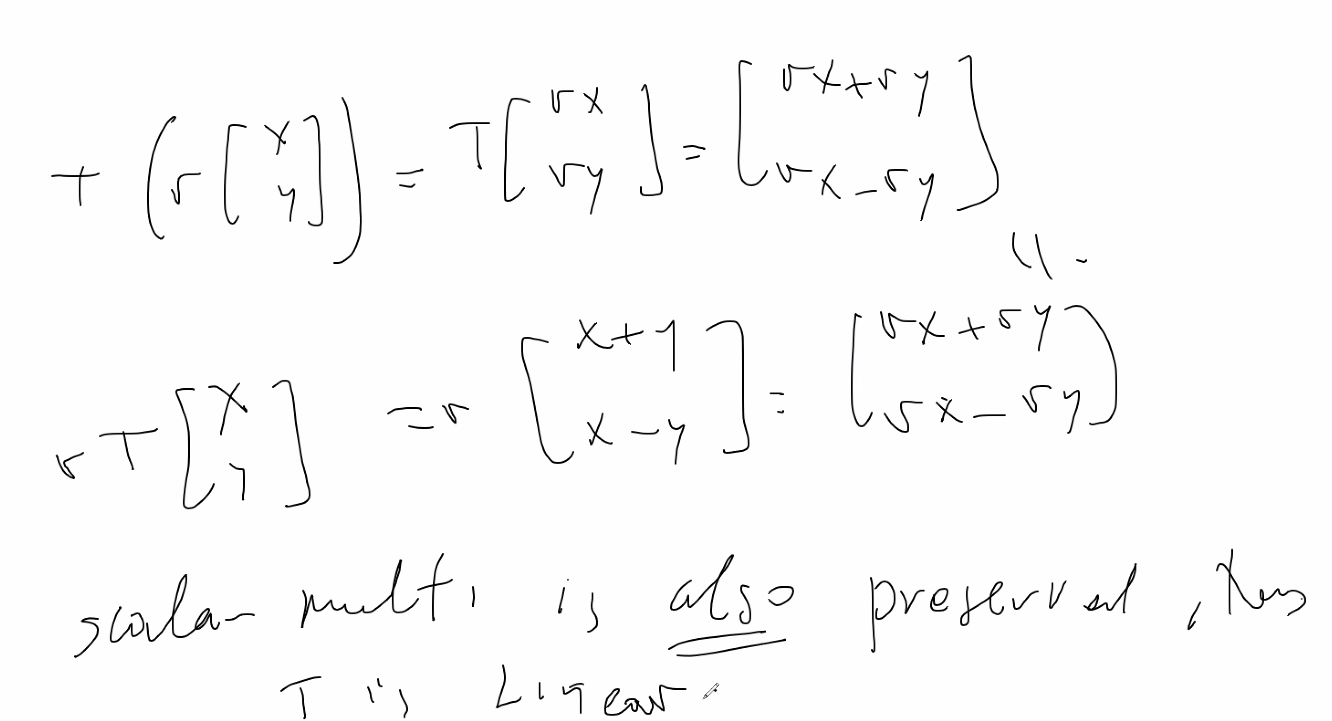 T (r [x y]) = T [rx ry] = [rx+ry rx-ry]
11.
rT [x y] = r [x+y x-y] = [rx+ry rx-ry]
scalar multi is also preserved, thus
T is Linear.